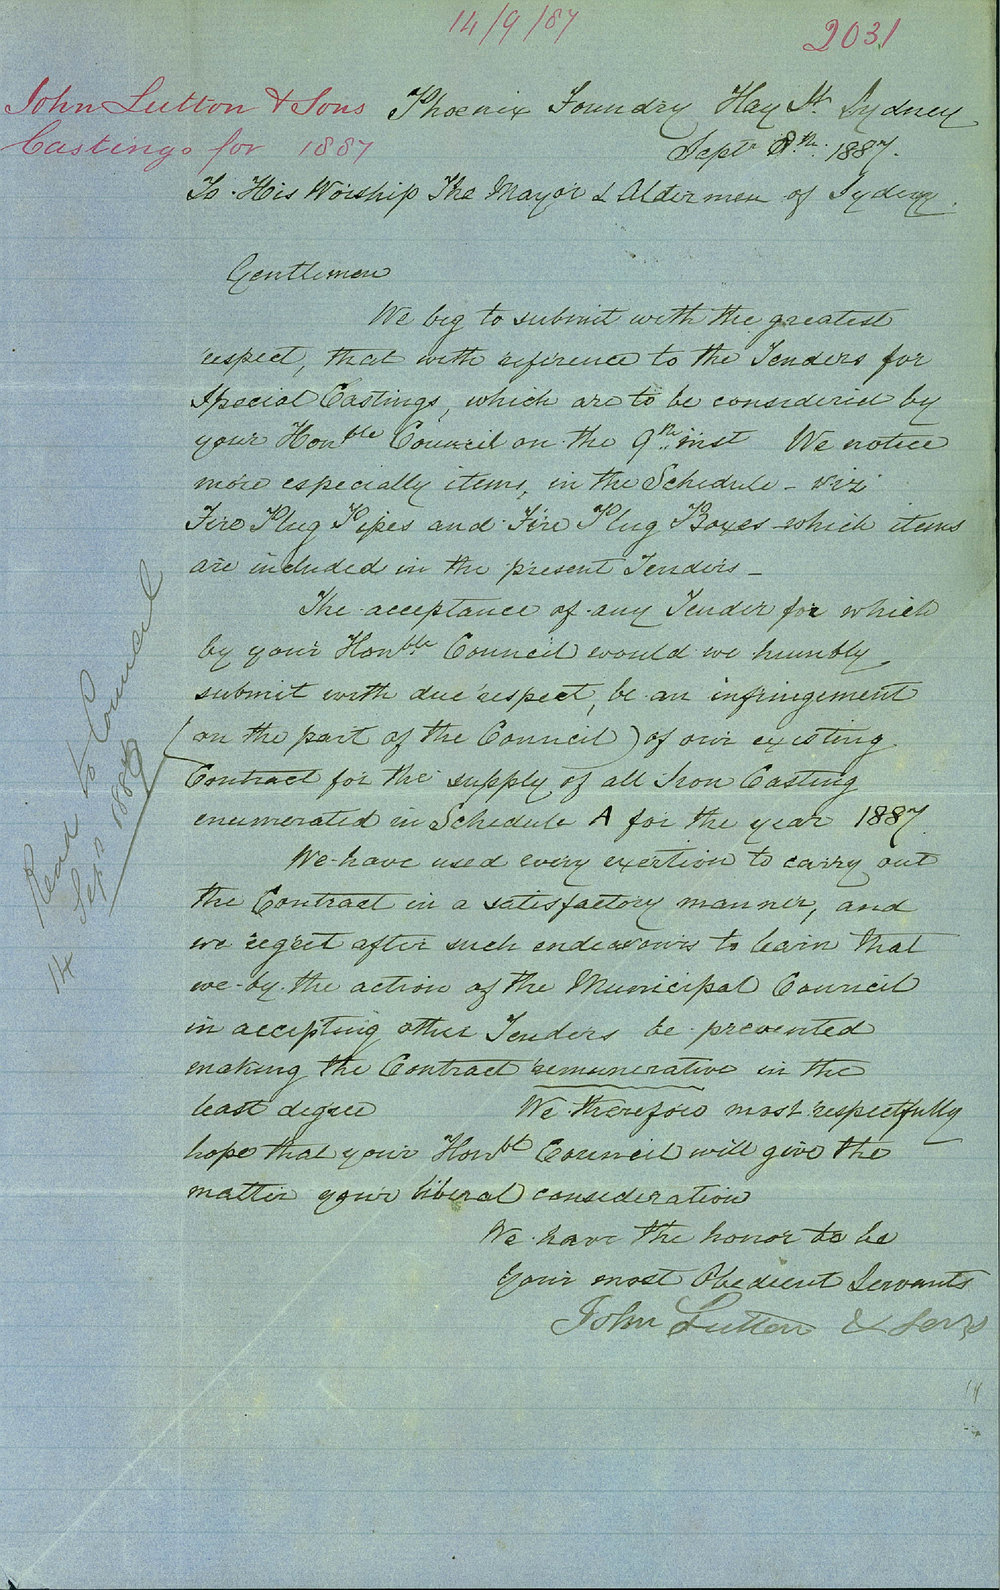 14/9/87
2031
John Sutton & Sons
Castings for 1887
Phoenix Foundry Hay St. Sydney
Septr 8th. 1887.
To His Worship The Mayor & Aldermen of Sydney.
Gentlemen
We beg to submit with the greatest
respect, that with reference to the Tenders for
Special Castings, which are to be considered by
your Honble Council on the 9th inst We notice
more especially items, in the Schedule - viz
Fire Plug Pipes and Fire Plug Boxes which items
are included in the present Tenders -
The acceptance of any Tender for which
by your Honble Council would we humbly
submit with due respect, be an infringement
(on the part of the Council) of our existing
Contract for the supply of all Iron Casting
enumerated in Schedule A for the year 1887
We have used every exertion to carry out
the Contract in a satisfactory manner, and
we regret after such endeavours to learn that
we by the action of the Municipal Council
in accepting other Tenders be prevented
making the Contract remunerative in the
least degree We therefore most respectfully
hope that your Honble Council will give the
matter your liberal consideration
We have the honor to be
Your most Obedient Servants
John Sutton & Sons
Read to Council
14 Sepr 1887